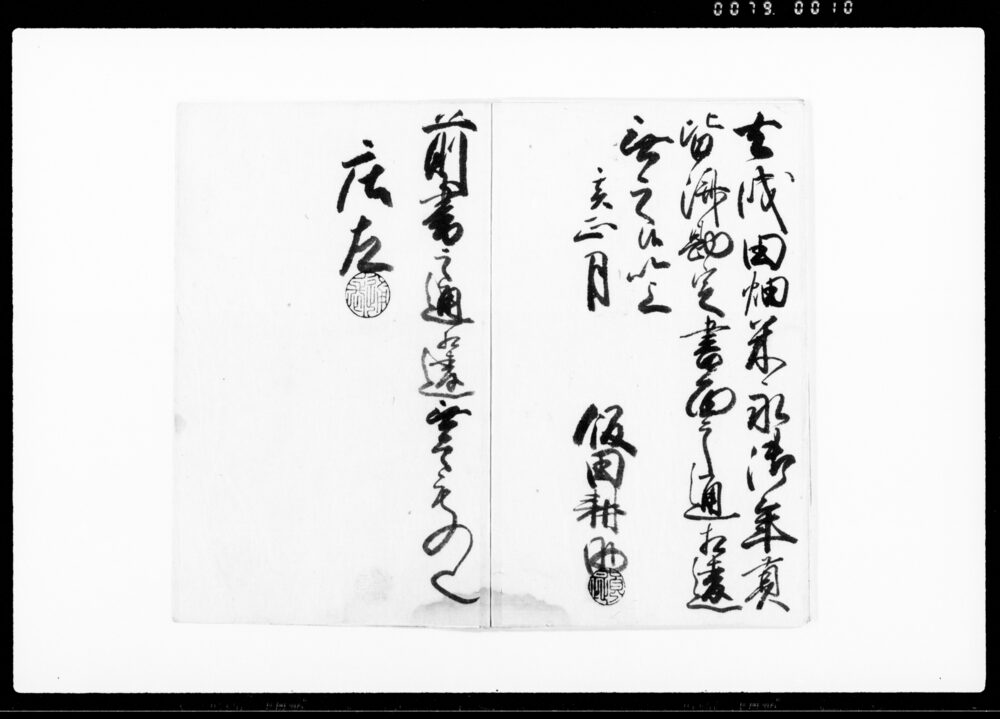 0079 0010
去戌田畑米永御年貢
皆済勘定書面之通相違
無之候以上
亥正月
飯田耕助
前書之通相違無之もの也
庄左